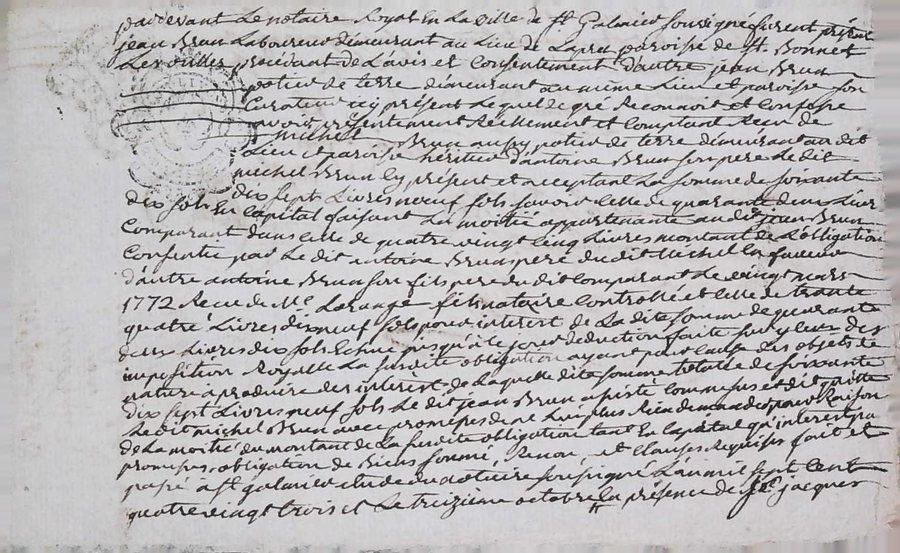 pardevant Le notaire Royal En La ville de st Galmier soussigné furent présent
jean Brun Laboureur demeurant au Lieu de Lapra paroisse de st. Bonnet
Les oulles, procédant de L'avis et Consentement d'autre jean Brun
potier de terre demeurant au même Lieu et paroisse son
Curateur icy présent Lequel de gré Reconnoit et Confesse
avoir présentement Réellement et Comptant Recu de
michel Brun aussy potier de terre demeurant au dit
Lieu et paroisse héritier d'antoine Brun son pere Le dit
michel Brun icy présent et acceptant La Somme de soixante
dix sept Livres neuf sols savoir Celle de quarante deux Livres
dix sols En Capital faisant La moitié appartenante au dit jean Brun
Comparant dans Celle de quatre vingt Cinq Livres montant de L'obligation
Consentie par Le dit antoine Brun pere du dit michel En faveur
d'autre antoine Brun son fils pere du dit Comparant Le vingt mars
1772 Recue Me. Larange fils notaire Controllée et Celle de trante
quatre Livres dix neuf sols pour interest de La dite Somme de quarante
deux Livres dix sols Echus jusqu'à ce jour deduction faite sur yceux des
imposition Royalle La susdite obligation ayant pour Cause des objets de
nature à produire des interest de Laquelle dite Somme totalle de soixante
dix sept Livres neuf sols Le dit jean Brun assisté Comme sus et dit quitte
Le dit michel Brun avec promesses de ne Lui plus Rien demander pour Raison
de La moitié du montant de La susdite obligation tant En Capital qu'interest par
promesses, obligation de Biens soumis, Renon, et Clauses Requises fait et
passé à st galmier étude du notaire soussigné L'an mil sept Cent
quatre vingt trois et Le treizieme octobre En présence de jacques